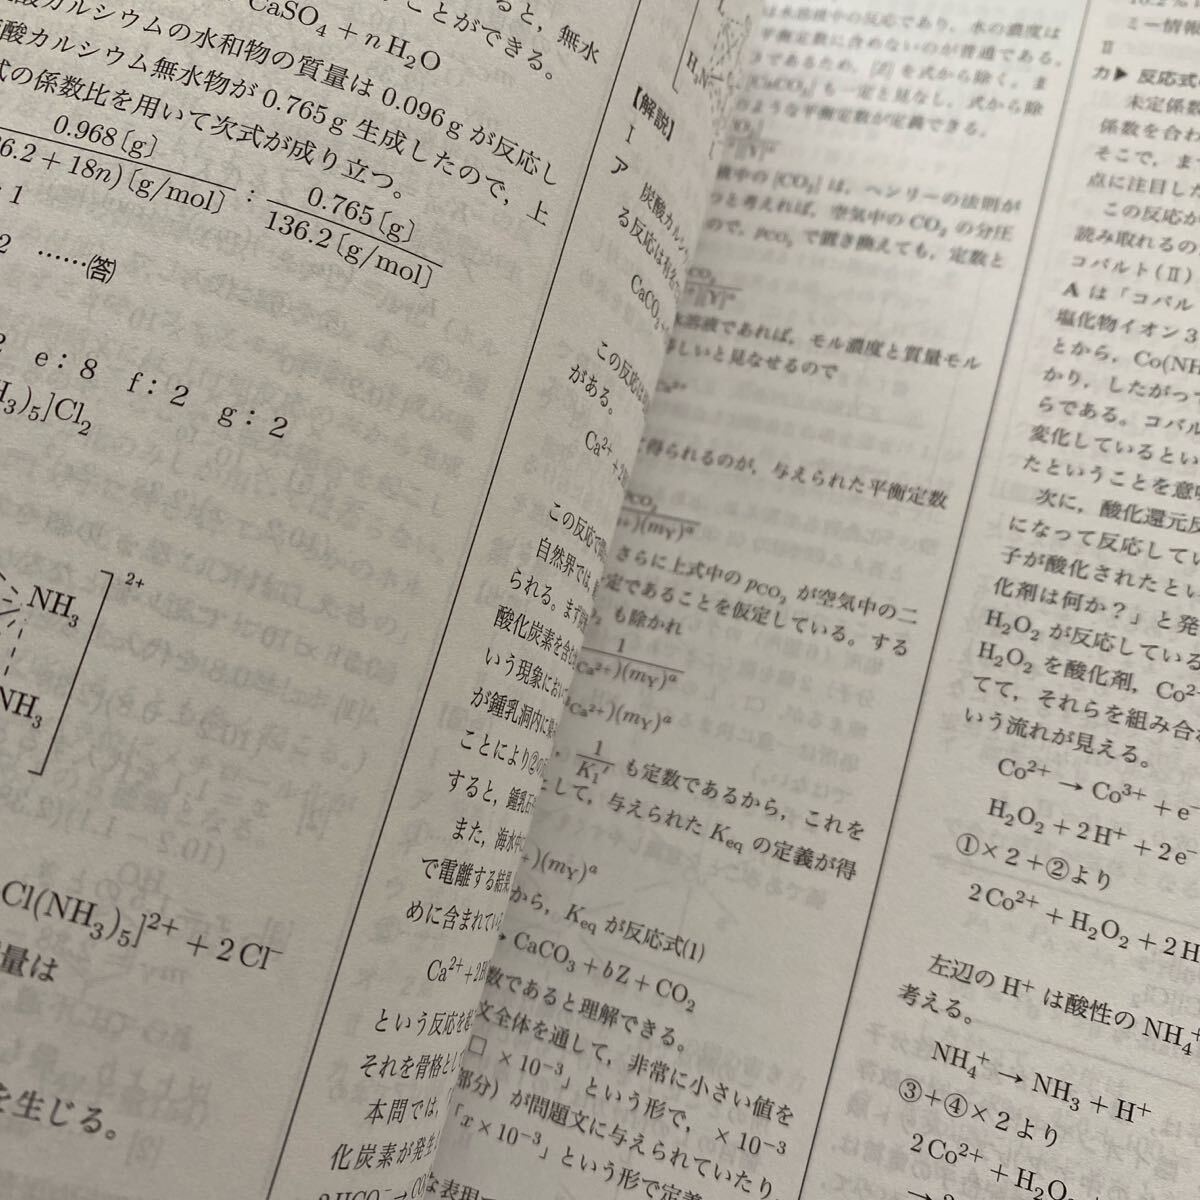 ると，無水
CaSO₄ + nH₂O
ことができる。
酸カルシウムの水和物の質量は 0.096 g が反応し
酸カルシウム無水物が 0.765 g 生成したので，上
式の係数比を用いて次式が成り立つ。
0.968〔g〕
6.2 + 18n)〔g/mol〕 : 0.765〔g〕
136.2〔g/mol〕
: 1
2 ……(答)
e：8 f：2 g：2
H₃)₅]Cl₂
NH₃
NH₃
2+
Cl(NH₃)₅]²⁺ + 2Cl⁻
量は
を生じる。
H₃N
【解説】
I
ア
炭酸カルシ
る反応は有名
CaCO₃
この反応は
がある。
Ca²⁺ + 2
この反応で
自然界では，
られる。まず
酸化炭素を含む
いう現象におい
が鍾乳洞内に
ことにより②の
すると，鍾乳石
また，海水中に
で電離する結果
めに含まれている
Ca²⁺ + 2H
という反応を起
それを骨格とし
本問では，
化炭素が発生
2HCO₃⁻ → CO
は水溶液中の反応であり，水の濃度は
平衡定数に含めないのが普通である。
であるため，[Z] を式から除く。ま
[CaCO₃] も一定と見なし，式から除
のような平衡定数が定義できる。
液中の [CO₂] は，ヘンリーの法則が
つと考えれば，空気中の CO₂ の分圧
ので，pCO₂ で置き換えても，定数と
水溶液であれば，モル濃度と質量モル
等しいと見なせるので
て得られるのが，与えられた平衡定数
さらに上式中の pCO₂ が空気中の二
定であることを仮定している。する
も除かれ
1
Ca²⁺)(mY)ᵃ
Ca²⁺)(mY)ᵃ
1
K₁′ も定数であるから，これを
として，与えられた Keq の定義が得
+)(mY)ᵃ
から，Keq が反応式(1)
→ CaCO₃ + bZ + CO₂
数であると理解できる。
文全体を通して，非常に小さい値を
□ × 10⁻³」という形で，× 10⁻³
部分）が問題文に与えられていたり，
「x × 10⁻³」という形で定義
な表現で
ミー情報
II
カ▶ 反応式
未定係数
係数を合わ
そこで，ま
点に注目した
この反応が
読み取れるの
コバルト(II)
A は「コバル
塩化物イオン 3
とから，Co(NH
かり，したがって
らである。コバル
変化しているとい
たということを意味
次に，酸化還元反
になって反応してい
子が酸化されたとい
化剤は何か？」と発
H₂O₂ が反応している
H₂O₂ を酸化剤，Co²⁺
てて，それらを組み合わ
いう流れが見える。
Co²⁺ → Co³⁺ + e⁻
H₂O₂ + 2H⁺ + 2e⁻
①×2＋②より
2Co²⁺ + H₂O₂ + 2H
左辺の H⁺ は酸性の NH₄⁺
考える。
NH₄⁺ → NH₃ + H⁺
③＋④×2より
2Co²⁺ + H₂O